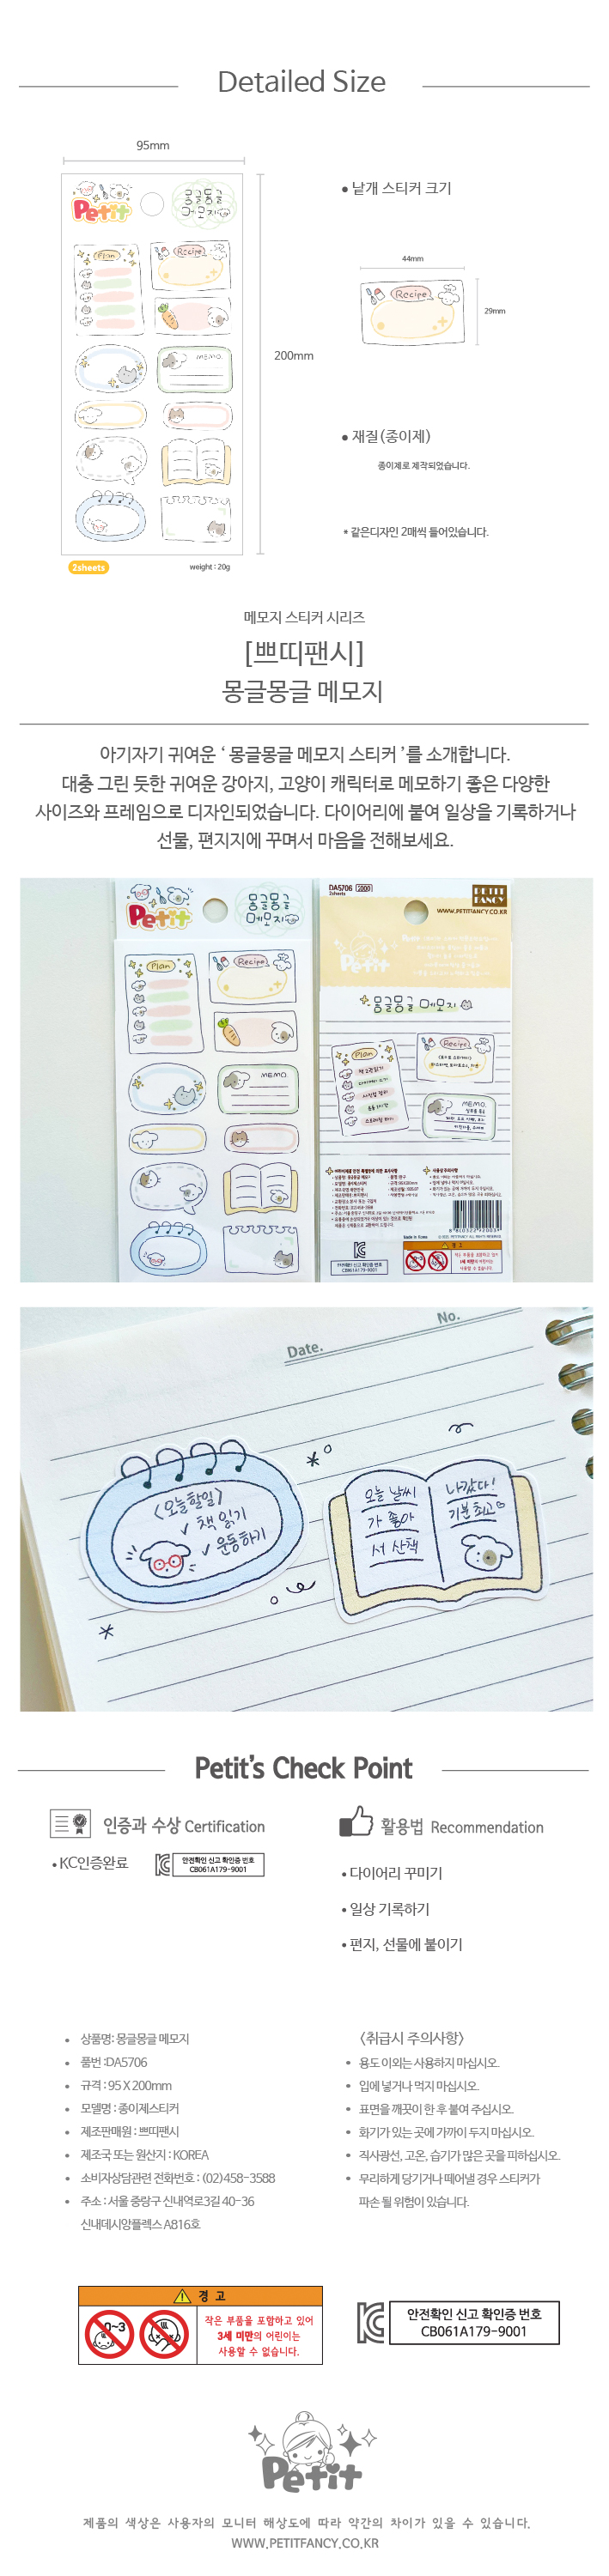 Detailed Size
95mm
Petit
몽글몽글
메모지
Plan
Recipe
MEMO.
200mm
2sheets
weight : 20g
• 낱개 스티커 크기
44mm
Recipe
29mm
• 재질(종이제)
종이제로 제작되었습니다.
* 같은디자인 2매씩 들어있습니다.
메모지 스티커 시리즈
[쁘띠팬시]
몽글몽글 메모지
아기자기 귀여운 ‘ 몽글몽글 메모지 스티커 ’를 소개합니다.
대충 그린 듯한 귀여운 강아지, 고양이 캐릭터로 메모하기 좋은 다양한
사이즈와 프레임으로 디자인되었습니다. 다이어리에 붙여 일상을 기록하거나
선물, 편지지에 꾸며서 마음을 전해보세요.
Petit
몽글몽글
메모지
Plan
Recipe
MEMO.
DA5706 2000
2sheets
PETIT FANCY
WWW.PETITFANCY.CO.KR
Petit
몽글몽글 메모지
Plan
Recipe
MEMO.
Made in Korea
경 고
안전확인 신고 확인증 번호
CB061A179-9001
Date.
No.
<오늘할일>
✓ 책 읽기
✓ 운동하기
오늘 날씨
가 좋아
서 산책
나갔다!
기분 최고♡
Petit’s Check Point
인증과 수상 Certification
• KC인증완료
안전확인 신고 확인증 번호
CB061A179-9001
활용법 Recommendation
• 다이어리 꾸미기
• 일상 기록하기
• 편지, 선물에 붙이기
• 상품명: 몽글몽글 메모지
• 품번 :DA5706
• 규격 : 95 X 200mm
• 모델명 : 종이제스티커
• 제조판매원 : 쁘띠팬시
• 제조국 또는 원산지 : KOREA
• 소비자상담관련 전화번호 : (02)458-3588
• 주소 : 서울 중랑구 신내역로3길 40-36
신내데시앙플렉스 A816호
<취급시 주의사항>
• 용도 이외는 사용하지 마십시오.
• 입에 넣거나 먹지 마십시오.
• 표면을 깨끗이 한 후 붙여 주십시오.
• 화기가 있는 곳에 가까이 두지 마십시오.
• 직사광선, 고온, 습기가 많은 곳을 피하십시오.
• 무리하게 당기거나 떼어낼 경우 스티커가
파손 될 위험이 있습니다.
경 고
0~3
작은 부품을 포함하고 있어
3세 미만의 어린이는
사용할 수 없습니다.
안전확인 신고 확인증 번호
CB061A179-9001
Petit
제품의 색상은 사용자의 모니터 해상도에 따라 약간의 차이가 있을 수 있습니다.
WWW.PETITFANCY.CO.KR